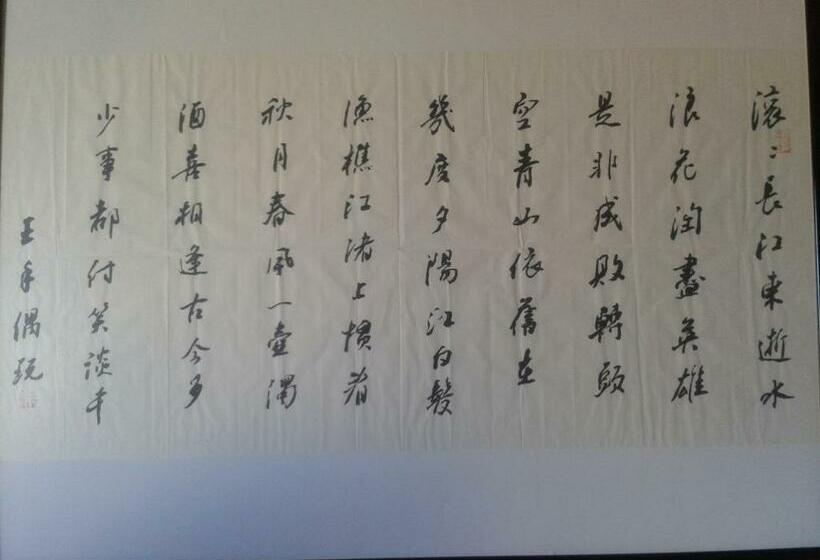 滚〻長江東逝水
浪花淘盡英雄
是非成敗轉頭
空青山依舊在
幾度夕陽紅白髮
漁樵江渚上慣看
秋月春風一壺濁
酒喜相逢古今多
少事都付笑談中
王偶玩